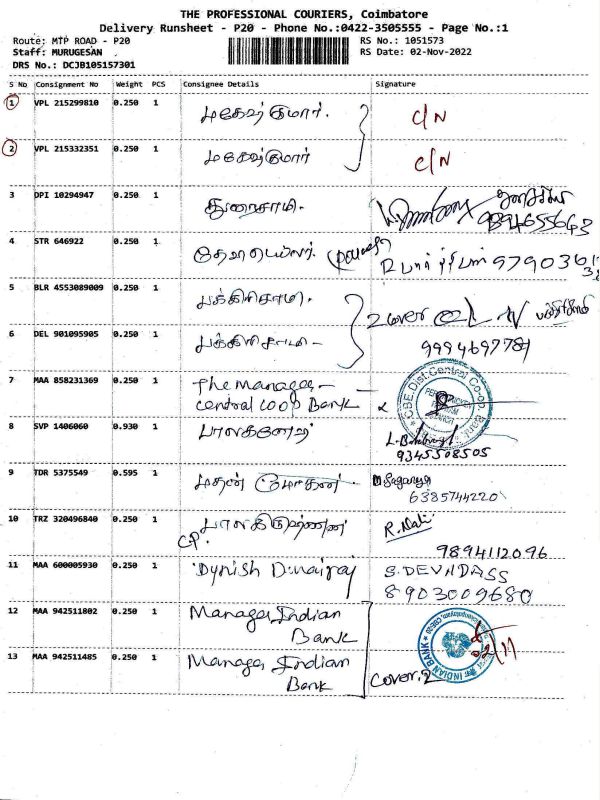 THE PROFESSIONAL COURIERS, Coimbatore
Delivery Runsheet - P20 - Phone No.:0422-3505555 - Page No.:1
Route: MTP ROAD - P20
RS No.: 1051573
Staff: MURUGESAN
RS Date: 02-Nov-2022
DRS No.: DCJB105157301
S No Consignment No Weight PCS Consignee Details Signature
1 VPL 215299810 0.250 1 மகேஷ்குமார். C/N
2 VPL 215332351 0.250 1 மகேஷ்குமார் C/N
3 DPI 10294947 0.250 1 துரைசாமி. 9894655643
4 STR 646922 0.250 1
5 BLR 4553089009 0.250 1 பக்கிரிசாமி. 2 cover
6 DEL 901095905 0.250 1 பக்கிரிசாமி -
7 MAA 858231369 0.250 1 The Manager -
Central Coop Bank
CBE.Dist.Central Co-op. Bank
8 SVP 1406060 0.930 1 பாலகணேஷ்
9345508505
9 TDR 5375549 0.595 1 மதன் மோகன்
6385744220
10 TRZ 320496840 0.250 1 பாலகிருஷ்ணன்
C.P.
9894112096
11 MAA 600005930 0.250 1 S. DEVADASS
8903009680
12 MAA 942511802 0.250 1 Manager Indian
Bank
INDIAN BANK
02/11
13 MAA 942511485 0.250 1 Manager Indian
Bank
Cover.2